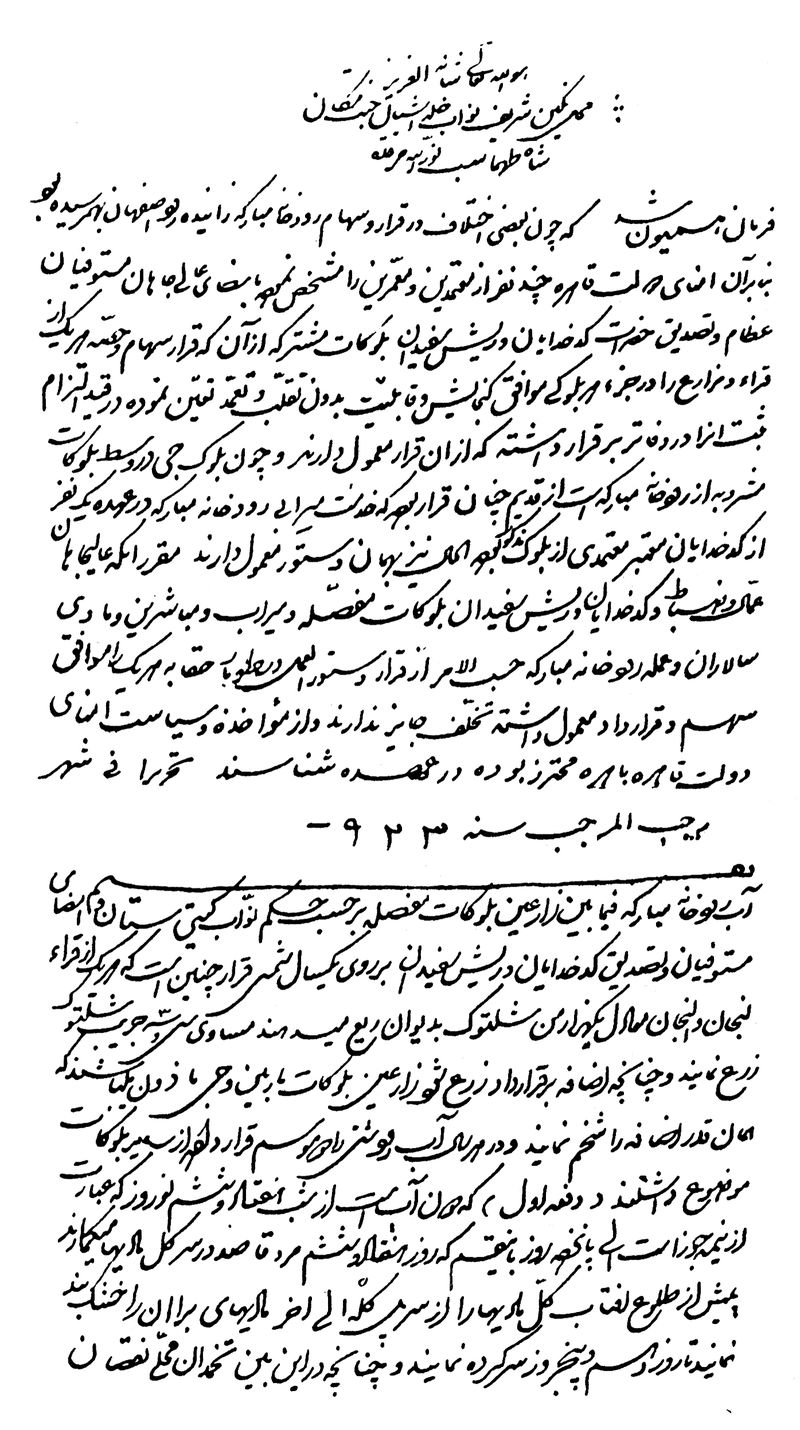 هو الله تعالی شانه العزیز
محل نگین شریف نواب خلد آشیان جنت مکان
شاه طهماسب نور الله مرقده
فرمان همیون شد که چون بعضی اختلاف در قرار و سهام رودخانه مبارکه زاینده رود اصفهان بهمرسیده بود
بنابرآن امنای دولت قاهره چند نفر از معتمدین و معمرین را مشخص نموده بامضای عالیجاهان مستوفیان
عظام و تصدیق حضرات کدخدایان و ریش سفیدان بلوکات مشترکه از آن که قرار سهام و حصه هر یک از
قراء و مزارع را در جزء هر بلوکی موافق گنجایش و قابلیت بدون تقلب و تعمد تعین نموده در قید التزام
ثبت آنرا در دفاتر برقرار داشته که از آن قرار معمول دارند و چون بلوک جی در وسط بلوکات
مشروبه از رودخانه مبارکه است از قدیم چنان قرار بوده که خدمت میرابی رودخانه مبارکه در عهده یک نفر
از کدخدایان معتبر معتمدی از بلوک مذکور بوده الحال نیز بهمان دستور معمول دارند مقرر آنکه عالیجاهان
عمال و ضباط و کدخدایان و ریش سفیدان بلوکات مفصله و میراب و مباشرین و مادی
سالاران و عمله رودخانه مبارکه حسب الامر از قرار دستور العمل در طومار حقابه هر یک را موافق
سهم و قرارداد معمول داشته تخلف جایز ندارند و از مؤاخذه و سیاست امنای
دولت قاهره باهره محترز بوده در عهده شناسند تحریرا فی شهر
رجب المرجب سنه ۹۲۳
آب رودخانه مبارکه فیما بین زارعین بلوکات مفصله بر حسب حکم نواب گیتی ستان و امضای
مستوفیان و تصدیق کدخدایان و ریش سفیدان بر روی یکسال شمسی قرار چنین است که هر یک از قراء
لنجان و النجان موازی یکهزار من شلتوک بدیوان ریع میدهند مساوی سی و سه جریب شلتوک
زرع نمایند و چنانچه اضافه بر قرارداد زرع شود زارعین بلوکات ماربین و جی ماذون میباشند که
همان قدر اضافه را شخم نمایند و در هر سال آب را دو موسم قرار داده از سایر بلوکات
موضوع داشتند دفعه اول که آن آب است از شب هفتاد و ششم نوروز که عبارت
از نیمه جوزاست الی پانزده روز باینقسم که روز هفتاد و ششم مرد قاصد در سر کل مادیها میگمارند
پیش از طلوع آفتاب کل مادیها را از سر پل کله الی آخر مادیهای براآن را خشک بند
نمایند تا روز دهم و پنج روز سرکرده نمایند و چنانچه در این بین تخمدان محلی نقصان